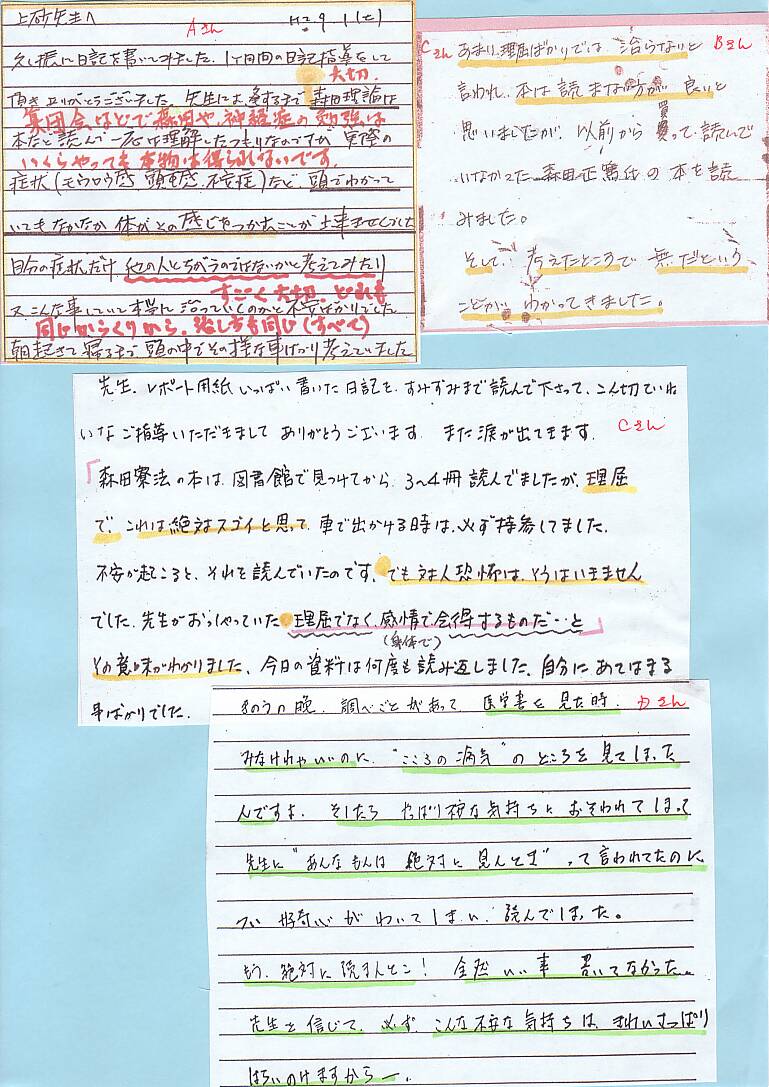 上砂先生へ Aさん H2.9.1(土)
久し振に日記を書いてみました。1ヶ月間の日記指導をして
大切。
頂きありがとうございました。先生にお逢するまで森田理論は
集団会などで森田や、神経症の勉強は
本など読んで一応は理解したつもりなのですが、実際の
いくらやっても本物は得られないです。
症状(モウロウ感、頭重感、不安症)など、頭でわかって
いてもなかなか体がその感じをつかむことが出来ませんでした
自分の症状だけ他の人とちがうのではないかと考えてみたり
すごく大切。どれも
又こんな事していて本当に治っていくのかと不安ばかりでした
同じからくりから。治し方も同じ(すべて)
朝起きて寝るまで頭の中でその様な事ばかり考えていました
Cさん あまり理屈ばかりでは治らないと Bさん
言われ、本は読まない方が良いと
思いましたが、以前から買って読んで
買
いなかった森田正馬氏の本を読
みました。
そして、考えたところで無だという
ことがわかってきました。
先生、レポート用紙いっぱい書いた日記を、すみずみまで読んで下さって、こん切ていね
いなご指導いただきまして ありがとうございます。また涙が出てきます。 Cさん
「森田療法の本は、図書館で見つけてから、3〜4冊読んでましたが、理屈
で、これは絶対スゴイと思って、車で出かける時は、必ず持参してました。
不安が起こると、それを読んでいたのです。でも対人恐怖は、そうはいきません
でした。先生がおっしゃっていた 理屈でなく、感情で会得するものだ…と」
(身体で)
その意味がわかりました。今日の資料は何度も読み返しました。自分にあてはまる
事ばかりでした。
きのうの晩、調べごとがあって 医学書を見た時、 Dさん
みなけれゃいいのに、"こころの病気"のところを見てしまった
んですよ。そしたら やっぱり不安な気持ちにおそわれてしまって
先生に"あんなもんは 絶対に見んとき"って言われてたのに
つい好奇心がわいてしまい、読んでしまった。
もう、絶対に読まんとこ! 全然いい事 書いてなかった。
先生を信じて、必ず、こんな不安な気持ちは、きれいさっぱり
はらいのけますからー。